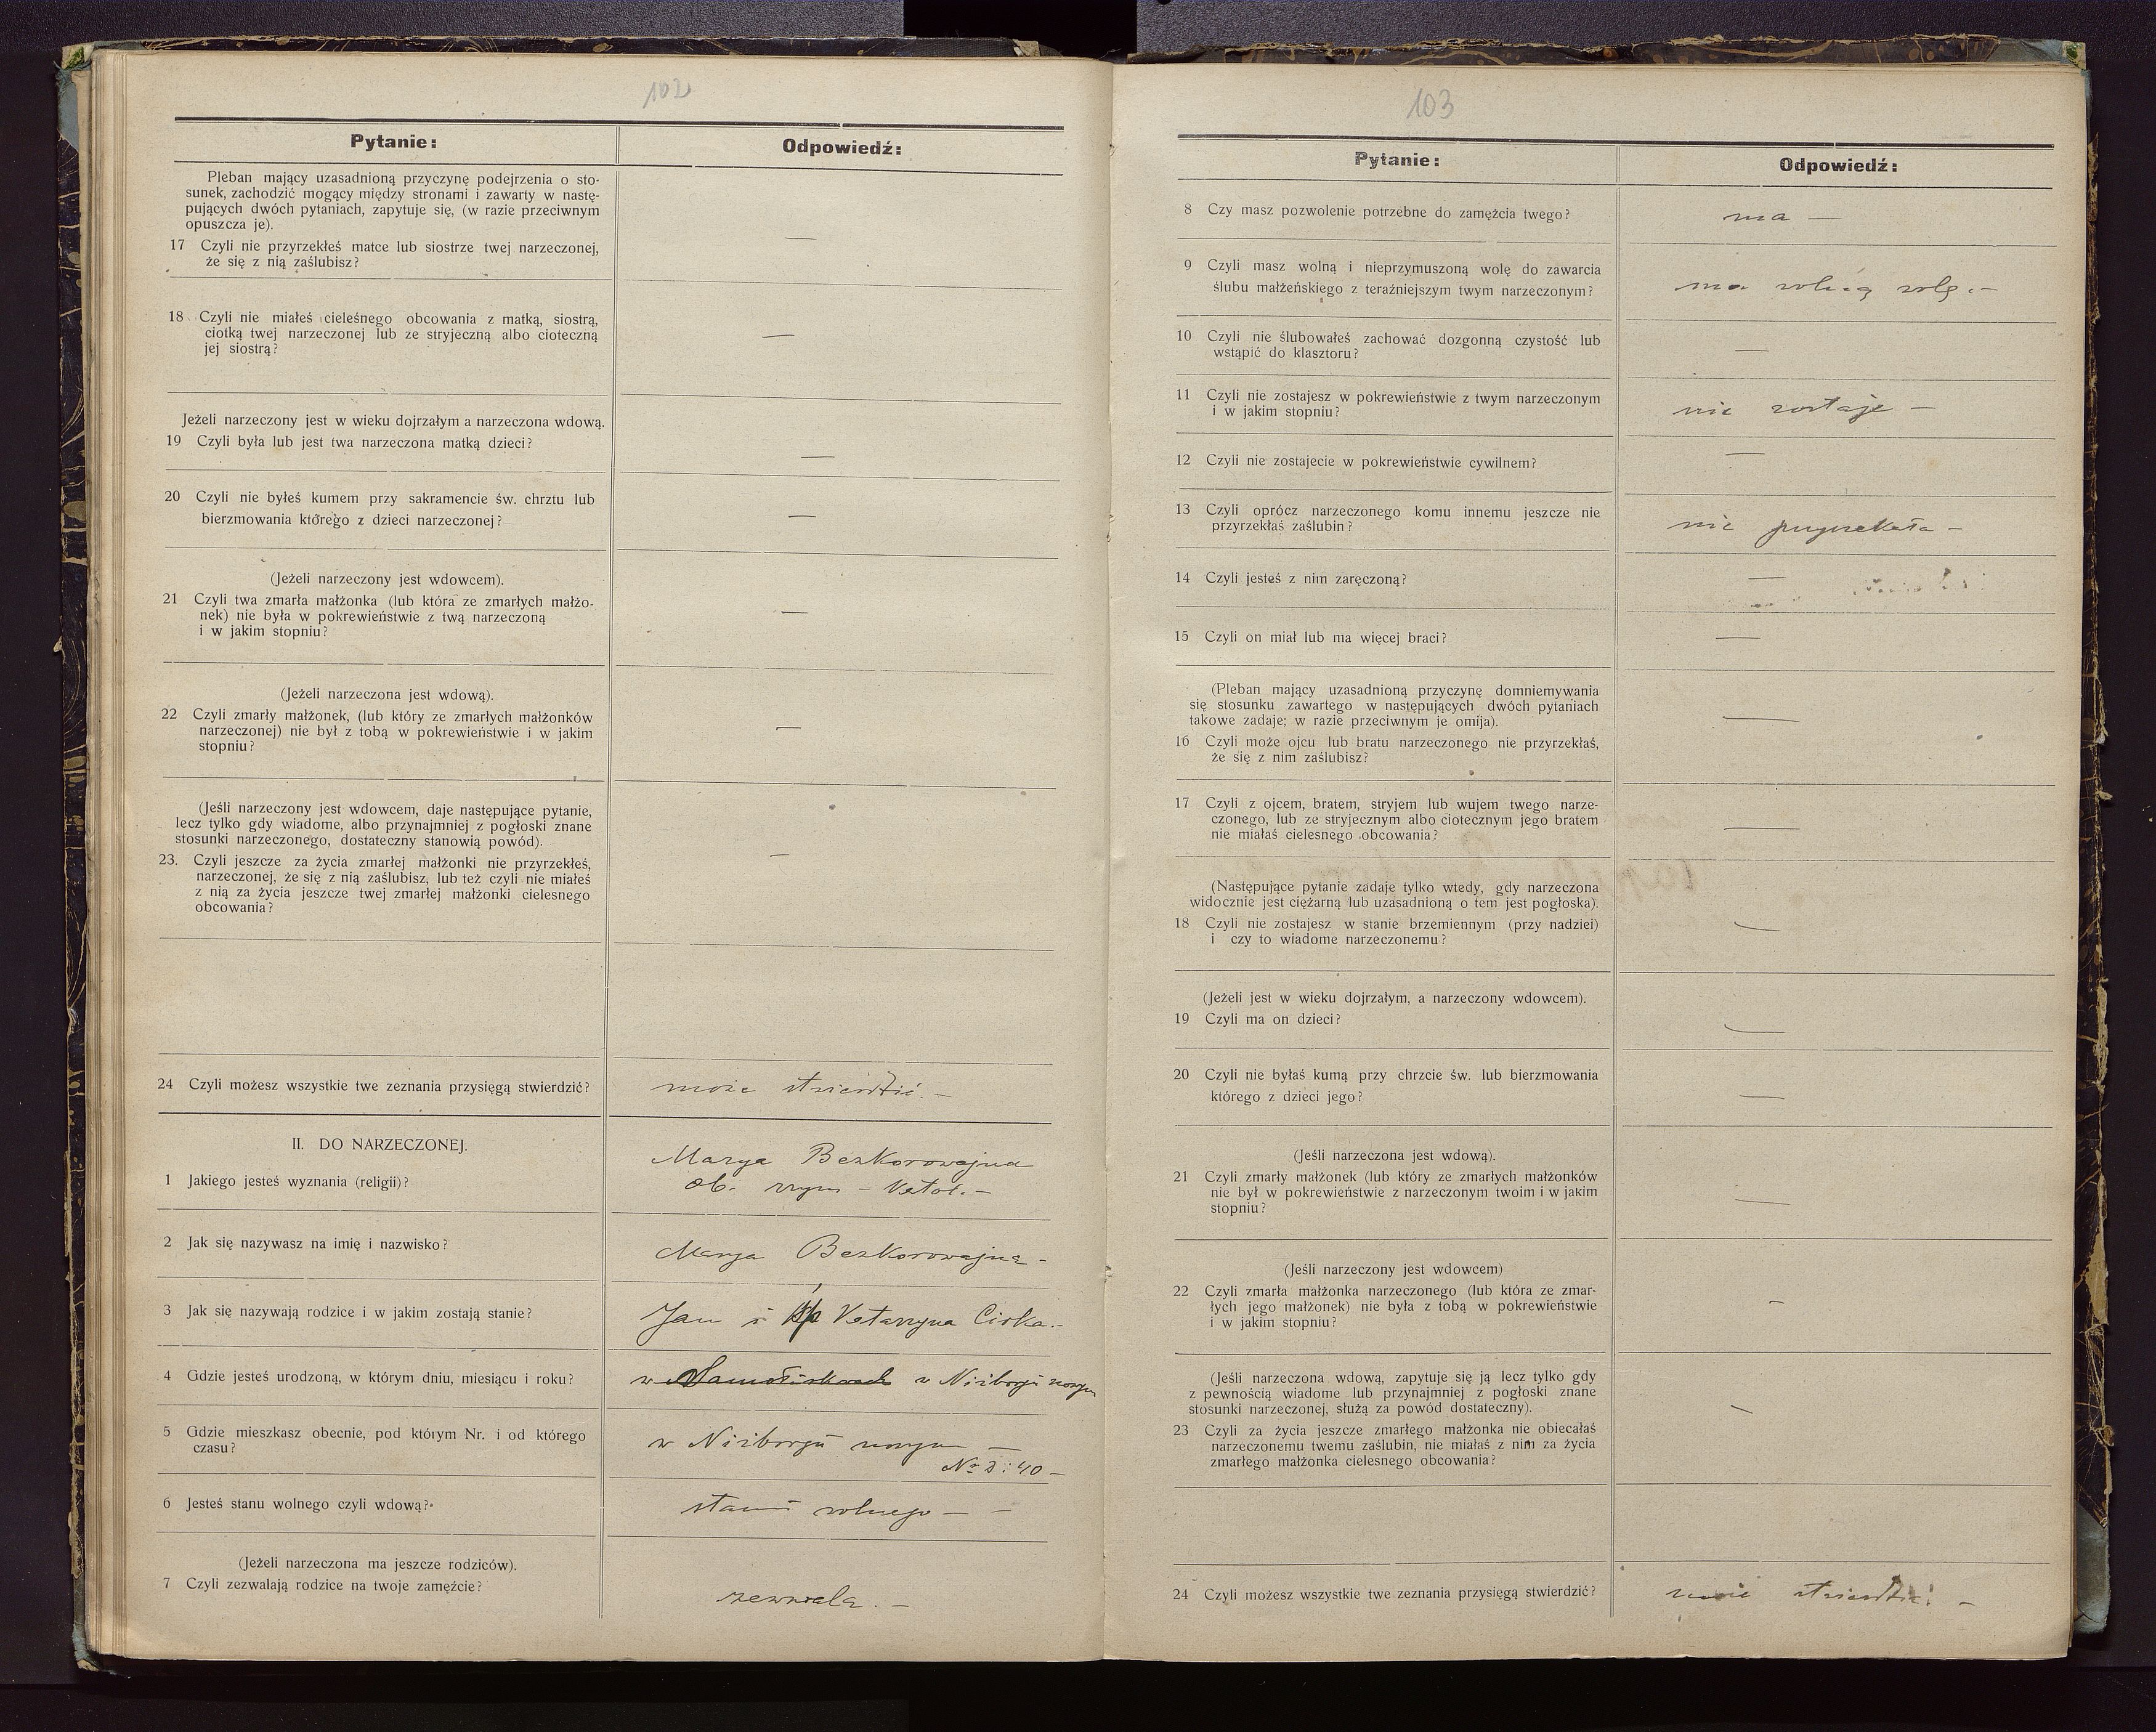 102
Pytanie:
Odpowiedź:
Pleban mający uzasadnioną przyczynę podejrzenia o sto-
sunek, zachodzić mogący między stronami i zawarty w nastę-
pujących dwóch pytaniach, zapytuje się, (w razie przeciwnym
opuszcza je).
17 Czyli nie przyrzekłeś matce lub siostrze twej narzeczonej,
że się z nią zaślubisz?
—
18 Czyli nie miałeś cieleśnego obcowania z matką, siostrą,
ciotką twej narzeczonej lub ze stryjeczną albo cioteczną
jej siostrą?
—
Jeżeli narzeczony jest w wieku dojrzałym a narzeczona wdową.
19 Czyli była lub jest twa narzeczona matką dzieci?
—
20 Czyli nie byłeś kumem przy sakramencie św. chrztu lub
bierzmowania którego z dzieci narzeczonej?
—
(Jeżeli narzeczony jest wdowcem).
21 Czyli twa zmarła małżonka (lub która ze zmarłych małżo-
nek) nie była w pokrewieństwie z twą narzeczoną
i w jakim stopniu?
—
(Jeżeli narzeczona jest wdową).
22 Czyli zmarły małżonek, (lub który ze zmarłych małżonków
narzeczonej) nie był z tobą w pokrewieństwie i w jakim
stopniu?
—
(Jeśli narzeczony jest wdowcem, daje następujące pytanie,
lecz tylko gdy wiadome, albo przynajmniej z pogłoski znane
stosunki narzeczonego, dostateczny stanowią powód).
23. Czyli jeszcze za życia zmarłej małżonki nie przyrzekłeś,
narzeczonej, że się z nią zaślubisz, lub też czyli nie miałeś
z nią za życia jeszcze twej zmarłej małżonki cielesnego
obcowania?
—
24 Czyli możesz wszystkie twe zeznania przysięgą stwierdzić?
może stwierdzić. —
II. DO NARZECZONEJ.
1 Jakiego jesteś wyznania (religii)?
Marya Bezkorowajna
ob. rzym – Katol. —
2 Jak się nazywasz na imię i nazwisko?
Marya Bezkorowajna -
3 Jak się nazywają rodzice i w jakim zostają stanie?
Jan i Katarzyna Cirka. -
4 Gdzie jesteś urodzoną, w którym dniu, miesiącu i roku?
w w Niżborgu nowym
5 Gdzie mieszkasz obecnie, pod którym Nr. i od którego
czasu?
w Niżborgu nowym —
№ D: 40 —
6 Jesteś stanu wolnego czyli wdową?
stanu wolnego — —
(Jeżeli narzeczona ma jeszcze rodziców).
7 Czyli zezwalają rodzice na twoje zamęźcie?
zezwala. —
103
Pytanie:
Odpowiedź:
8 Czy masz pozwolenie potrzebne do zamężcia twego?
ma —
9 Czyli masz wolną i nieprzymuszoną wolę do zawarcia
ślubu małżeńskiego z teraźniejszym twym narzeczonym?
ma wolną wolę. —
10 Czyli nie ślubowałeś zachować dozgonną czystość lub
wstąpić do klasztoru?
—
11 Czyli nie zostajesz w pokrewieństwie z twym narzeczonym
i w jakim stopniu?
nie zostaje —
12 Czyli nie zostajecie w pokrewieństwie cywilnem?
—
13 Czyli oprócz narzeczonego komu innemu jeszcze nie
przyrzekłaś zaślubin?
nie przyrzekała —
14 Czyli jesteś z nim zaręczoną?
—
15 Czyli on miał lub ma więcej braci?
—
(Pleban mający uzasadnioną przyczynę domniemywania
się stosunku zawartego w następujących dwóch pytaniach
takowe zadaje; w razie przeciwnym je omija).
16 Czyli może ojcu lub bratu narzeczonego nie przyrzekłaś,
że się z nim zaślubisz?
—
17 Czyli z ojcem, bratem, stryjem lub wujem twego narze-
czonego, lub ze stryjecznym albo ciotecznym jego bratem
nie miałaś cielesnego obcowania?
—
(Następujące pytanie zadaje tylko wtedy, gdy narzeczona
widocznie jest ciężarną lub uzasadnioną o tem jest pogłoska).
18 Czyli nie zostajesz w stanie brzemiennym (przy nadziei)
i czy to wiadome narzeczonemu?
—
(Jeżeli jest w wieku dojrzałym, a narzeczony wdowcem).
19 Czyli ma on dzieci?
—
20 Czyli nie byłaś kumą przy chrzcie św. lub bierzmowania
którego z dzieci jego?
—
(Jeśli narzeczona jest wdową).
21 Czyli zmarły małżonek (lub który ze zmarłych małżonków
nie był w pokrewieństwie z narzeczonym twoim i w jakim
stopniu?
—
(Jeśli narzeczony jest wdowcem)
22 Czyli zmarła małżonka narzeczonego (lub która ze zmar-
łych jego małżonek) nie była z tobą w pokrewieństwie
i w jakim stopniu?
-
(Jeśli narzeczona wdową, zapytuje się ją lecz tylko gdy
z pewnością wiadome lub przynajmniej z pogłoski znane
stosunki narzeczonej, służą za powód dostateczny).
23 Czyli za życia jeszcze zmarłego małżonka nie obiecałaś
narzeczonemu twemu zaślubin, nie miałaś z nim za życia
zmarłego małżonka cielesnego obcowania?
-
24 Czyli możesz wszystkie twe zeznania przysięgą stwierdzić?
może stwierdzić. —